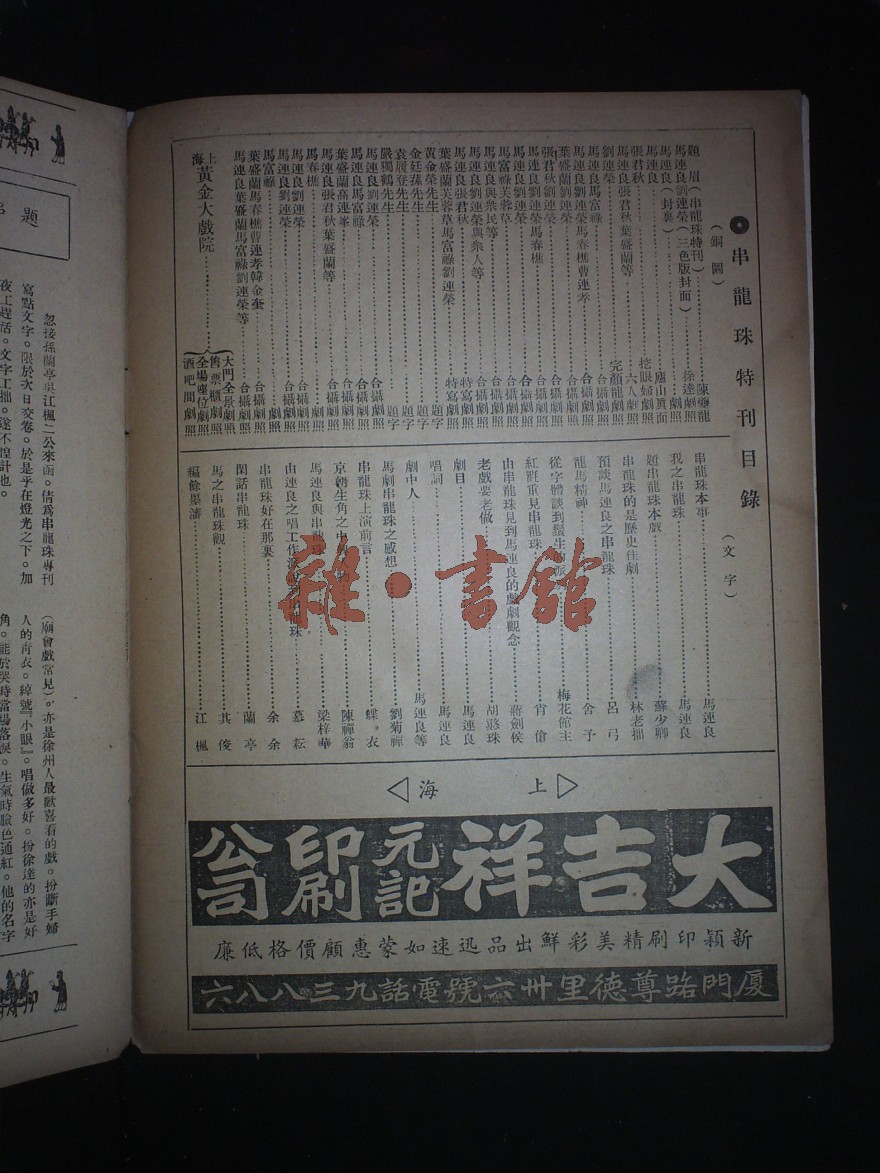 串龍珠特刊目錄
(銅圖)
題眉(串龍珠特刊)………陳靈龍
馬連良劉連榮(三色版封面)………徐達劇照
馬連良(封裏)………廬山眞面
馬連良………挖眼婦劇照
張君秋………六人劇照
馬連良張君秋葉盛蘭等………完顏龍劇照
劉連榮………合攝劇照
馬連良馬富祿………合攝劇照
馬連良劉連榮馬春樵曹連孝………合攝劇照
葉盛蘭劉連榮………合攝劇照
張君秋劉連榮………合攝劇照
馬連良劉連榮馬春樵………合攝劇照
馬連良劉連榮………合攝劇照
馬富祿芙蓉草………合攝劇照
馬連良與衆民等………合攝劇照
馬連良劉連榮與衆人等………合攝劇照
馬連良張君秋………特寫劇照
葉盛蘭芙蓉草馬富祿劉連榮………特寫劇照
黃金榮先生………題字
金廷蓀先生………題字
袁履登先生………題字
嚴獨鶴先生………題字
馬連良劉連榮………合攝劇照
馬連良馬富祿………合攝劇照
葉盛蘭高連峯………合攝劇照
馬連良張君秋葉盛蘭等………合攝劇照
馬春樵………劇照
馬連良劉連榮………合攝劇照
馬連良劉連榮………合攝劇照
馬富祿………劇照
葉盛蘭馬春樵曹連孝韓金奎………合攝劇照
馬連良葉盛蘭馬富祿劉連榮等………合攝劇照
上海黃金大戲院………
大門全景劇照
售票櫃劇照
全場座位劇照
酒吧間劇照
(文字)
串龍珠本事………馬連良
我之串龍珠………馬連良
題串龍珠本戲………蘇少卿
串龍珠的是歷史佳劇………林老拙
預談馬連良之串龍珠………呂弓
龍馬精神………舍予
從字體談到鬚生………梅花館主
紅氍重見串龍珠………肖傖
由串龍珠見到馬連良的戲劇觀念………蔣劍侯
老戲要老做………胡憨珠
劇目………馬連良
唱詞………馬連良
劇中人………馬連良等
馬劇串龍珠之感想………劉菊禪
串龍珠上演前言………蝶衣
京朝生角之中………陳禪翁
馬連良與串龍珠………梁梓華
由連良之唱工作派………珠………慕耘
串龍珠好在那裏………余余
閑話串龍珠………蘭亭
馬之串龍珠觀………其俊
編餘墨瀋………江楓
雜·書館
上海
大吉祥元記印刷公司
新穎印刷精美彩鮮出品迅速如蒙惠顧價格低廉
廈門路尊德里卅六號電話九三八八六
題
忽接孫蘭亭與江楓二公來函。倩爲串龍珠專刊
寫點文字。限於次日交卷。於是乎在燈光之下。加
夜工趕活。文字工拙。遂不遑計也。
(廟會戲常見)。亦是徐州人最歡喜看的戲。扮斷手婦
人的靑衣。綽號『小眼』。唱做多好。扮徐達的亦是好
角。能於哭時當場落淚。生氣時臉色通紅。他的名字